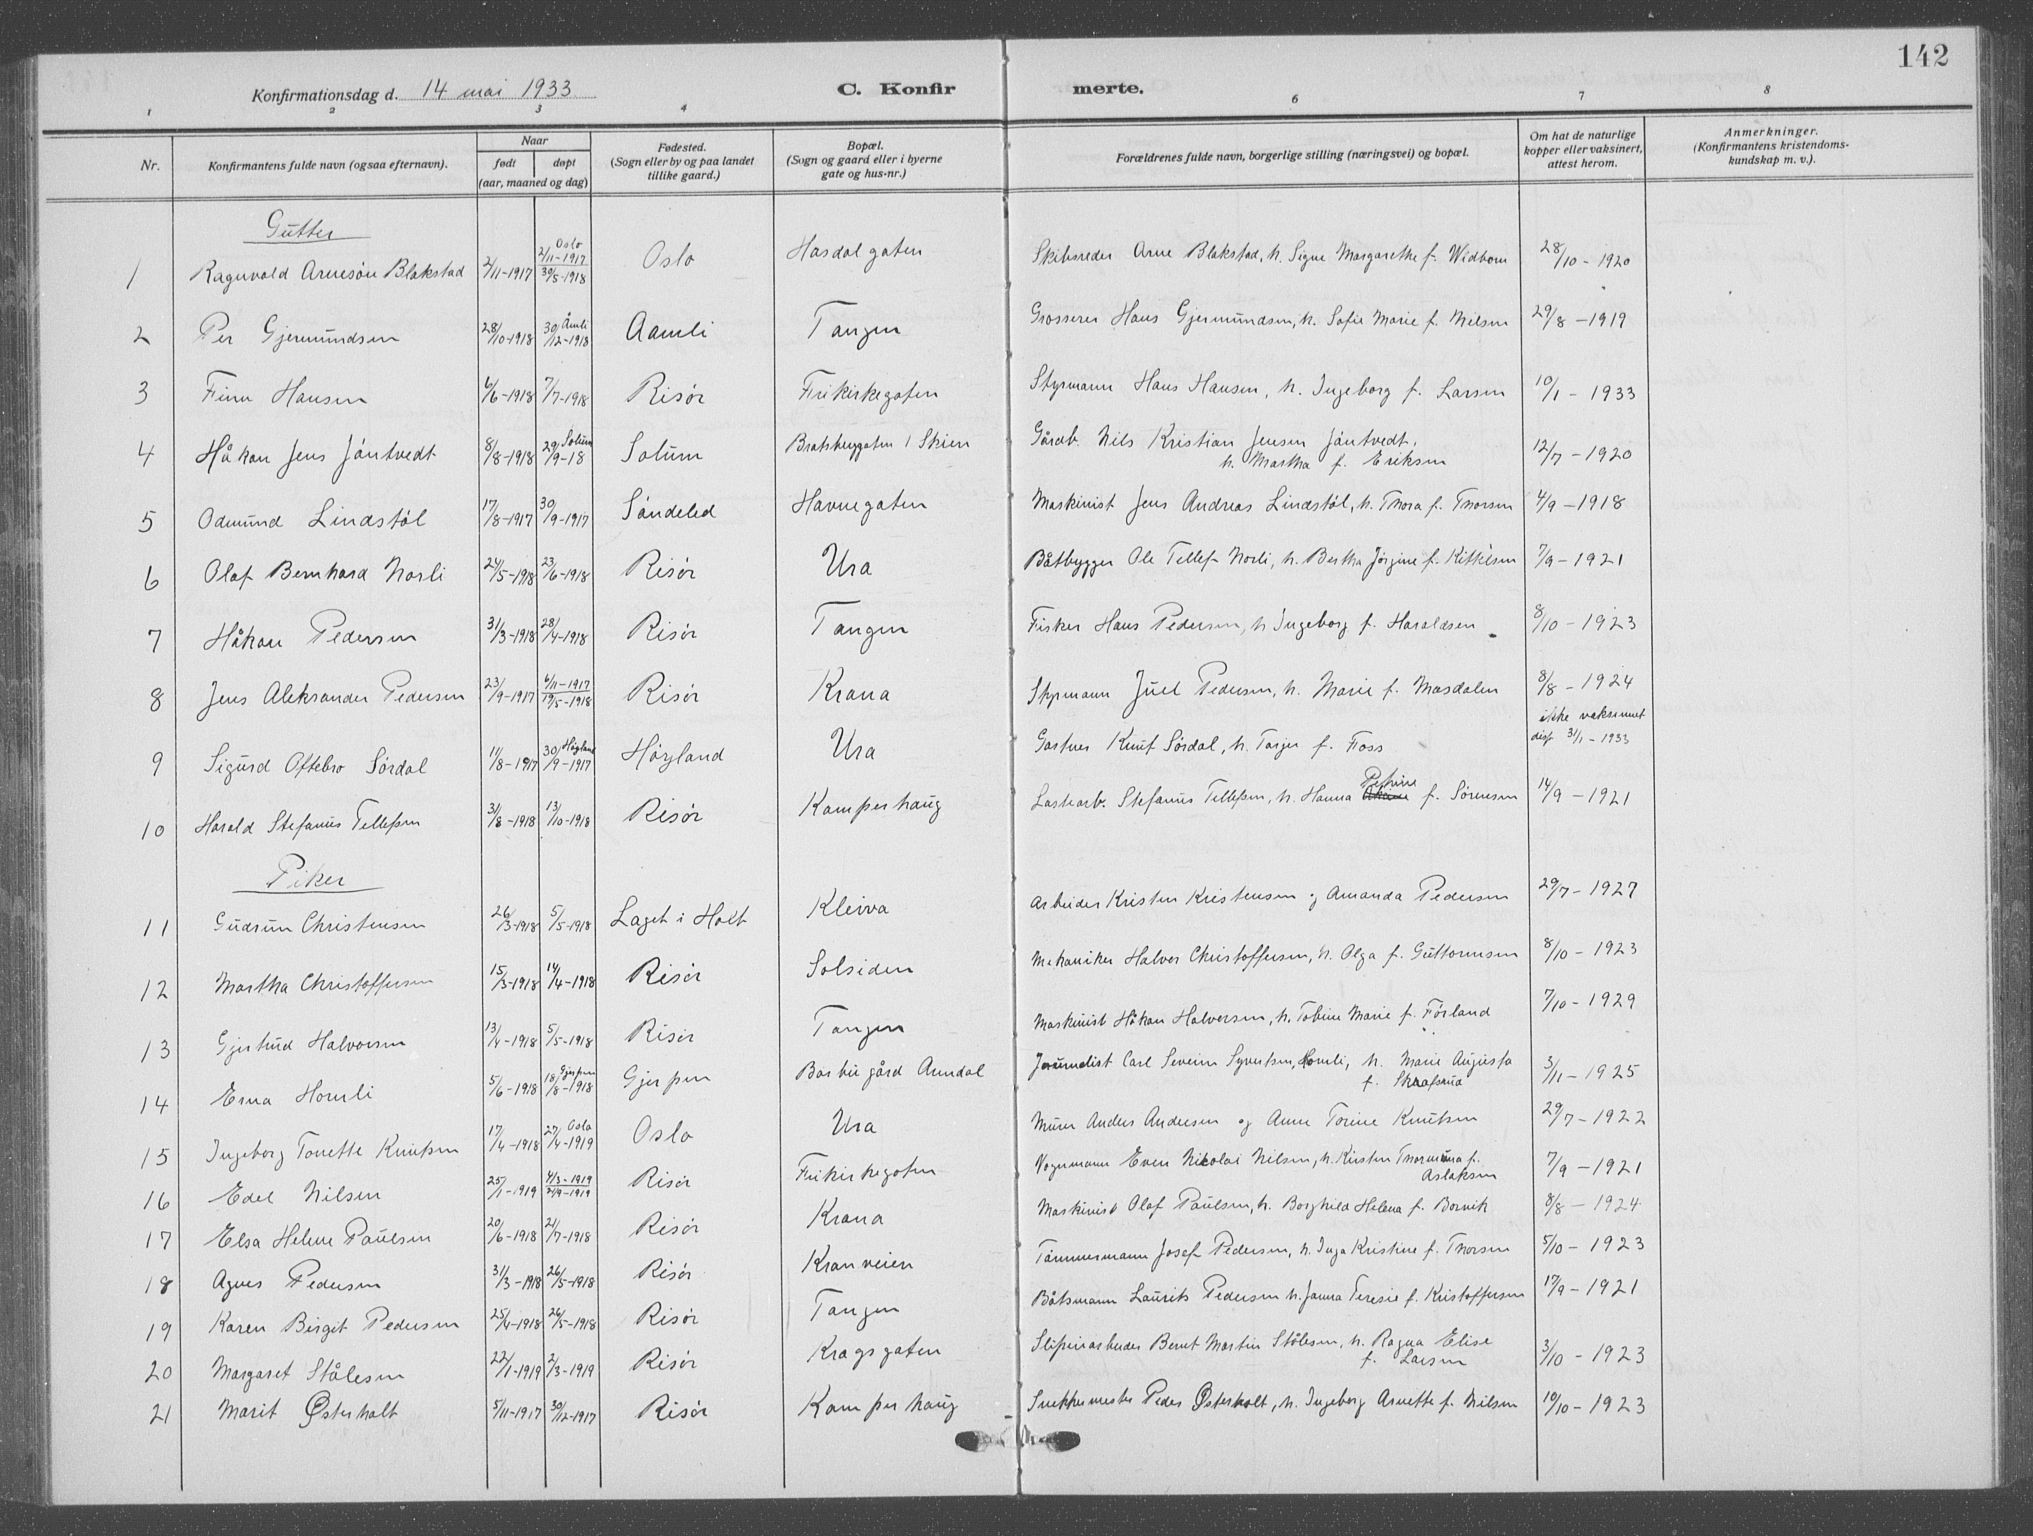 142
Konfirmationsdag d. 14 mai 1933
C. Konfirmerte.
1 2 3 4 6 7 8
Nr. | Konfirmantens fulde navn (ogsaa efternavn). | Naar født døpt (aar, maaned og dag) | Fødested. (Sogn eller by og paa landet tillike gaard.) | Bopæl. (Sogn og gaard eller i byerne gate og hus-nr.) | Forældrenes fulde navn, borgerlige stilling (næringsvei) og bopæl. | Om hat de naturlige kopper eller vaksinert, attest herom. | Anmerkninger. (Konfirmantens kristendomskundskap m. v.).
Gutter
1 Ragnvald Arnesøn Blakstad 2/11-1917 Oslo 2/11-1917 30/5-1918 Oslo Hasdalgaten Skibsreder Arne Blakstad, h. Signe Margarethe f. Widbom 28/10-1920
2 Per Gjermundsen 28/10-1918 Åmli 30/12-1918 Aamli Tangen Grosserer Hans Gjermundsen, h. Sofie Marie f. Nilsen 29/8-1919
3 Finn Hansen 6/6-1918 7/7-1918 Risør Frikirkegaten Styrmann Hans Hansen, h. Ingeborg f. Larsen 10/1-1933
4 Håkon Jens Jåntvedt 8/8-1918 Solum 29/9-18 Solum Bratsbergaten 1 Skien Gårdb. Nils Kristian Jensen Jåntvedt,
h. Martha f. Eriksen 12/7-1920
5 Odmund Lindstøl 17/8-1917 30/9-1917 Søndeled Havnegaten Maskinist Jens Andreas Lindstøl, h. Thora f. Thorsen 4/9-1918
6 Olaf Bernhard Norli 24/5-1918 23/6-1918 Risør Ura Båtbygger Ole Tellef Norli, h. Bertha Jørgine f. Kittelsen 7/9-1921
7 Håkon Pedersen 31/3-1918 28/4-1918 Risør Tangen Fisker Hans Pedersen, h Ingeborg f. Haraldsen 8/10-1923
8 Jens Aleksander Pedersen 23/9-1917 6/11-1917 19/5-1918 Risør Krana Styrmann Juel Pedersen, h. Marie f. Masdalen 8/8-1924
9 Sigurd Oftebro Sørdal 11/8-1917 Høgland 30/9-1917 Høyland Ura Gartner Knut Sørdal, h. Torjer f. Foss ikke vaksinert
disp 31/1-1933
10 Harald Stefanus Tellefsen 31/8-1918 13/10-1918 Risør Kamperhaug Lastearb. Stefanus Tellefsen, h. Hanna Petrine f. Sørensen 14/9-1921
Piker
11 Gudrun Christensen 26/3-1918 5/5-1918 Laget i Holt Kleiva Arbeider Kristen Kristensen og Amanda Pedersen 29/7-1927
12 Martha Christoffersen 15/3-1918 14/4-1918 Risør Solsiden Mekaniker Halvor Christoffersen, h. Olga f. Guttormsen 8/10-1923
13 Gjertrud Halvorsen 13/4-1918 5/5-1918 Risør Tangen Maskinist Håkon Halvorsen, h. Tobine Marie f. Førland 7/10-1929
14 Erna Homli 5/6-1918 Gjerpen 18/8-1918 Gjerpen Barbu gård Arendal Journalist Carl Severin Syvertsen, Homli, h. Marie Augusta
f. 3/11-1925
15 Ingeborg Tonette Knutsen 17/4-1918 Oslo 27/4-1919 Oslo Ura Murer Anders Andersen og Anne Torine Knutsen 29/7-1922
16 Edel Nilsen 25/1-1919 4/3-1919 21/9-1919 Risør Frikirkegaten Vognmann Even Nikolai Nilsen, h. Kirsten Thormina f.
Aslaksen 7/9-1921
17 Elsa Helene Paulsen 20/6-1918 21/7-1918 Risør Krana Maskinist Olaf Paulsen, h. Borghild Helena f. Borvik 8/8-1924
18 Agnes Pedersen 31/3-1918 26/5-1918 Risør Kranveien Tømmermann Josef Pedersen, h. Inga Kristine f. Thorsen 5/10-1923
19 Karen Birgit Pedersen 25/4-1918 26/5-1918 Risør Tangen Båtsmann Laurits Pedersen h. Janna Teresie f. Kristoffersen 17/9-1921
20 Margaret Stålesen 22/1-1919 2/3-1919 Risør Kragsgaten Sliperiarbeider Bernt Martin Stålesen, h. Ragna Elise
f. Larsen 3/10-1923
21 Marit Østerholt 5/11-1917 30/12-1917 Risør Kamperhaug Snekkermester Peder Østerholt, h. Ingeborg Arnette f. Nilsen 10/10-1923